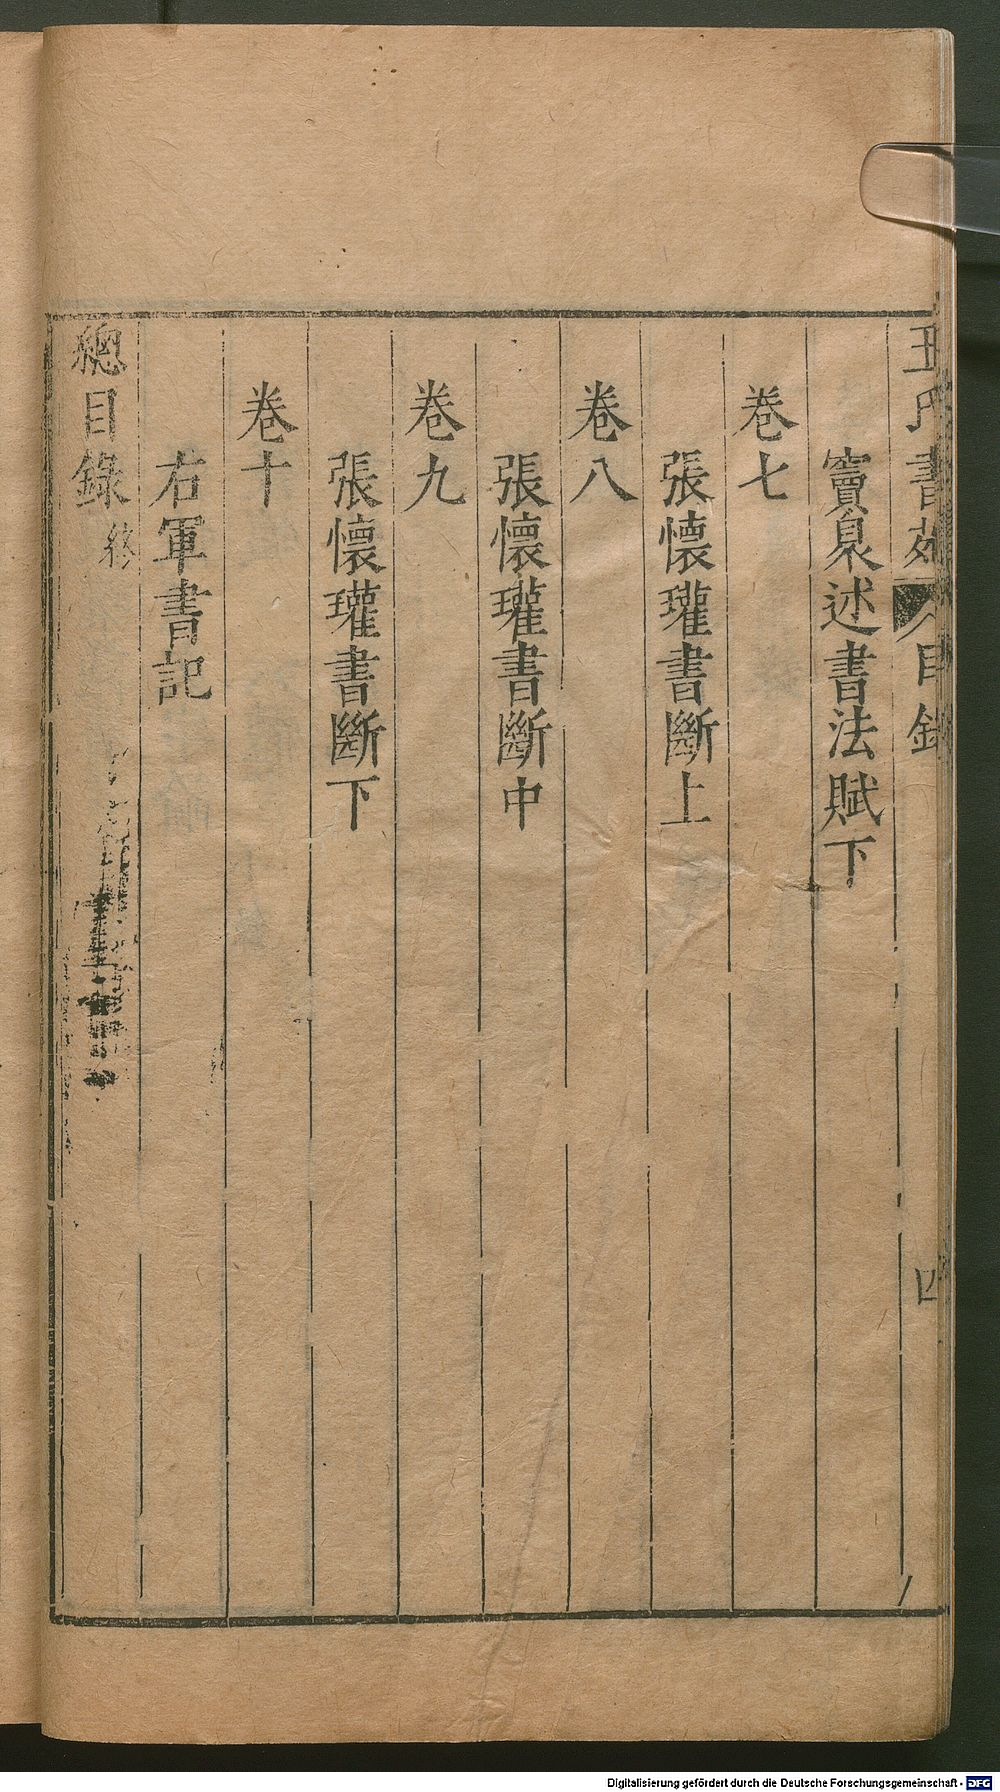 王氏書苑 目錄 四
竇臮述書法賦下
卷七
張懷瓘書斷上
卷八
張懷瓘書斷中
卷九
張懷瓘書斷下
卷十
右軍書記
總目錄終
Digitalisierung gefördert durch die Deutsche Forschungsgemeinschaft - DFG